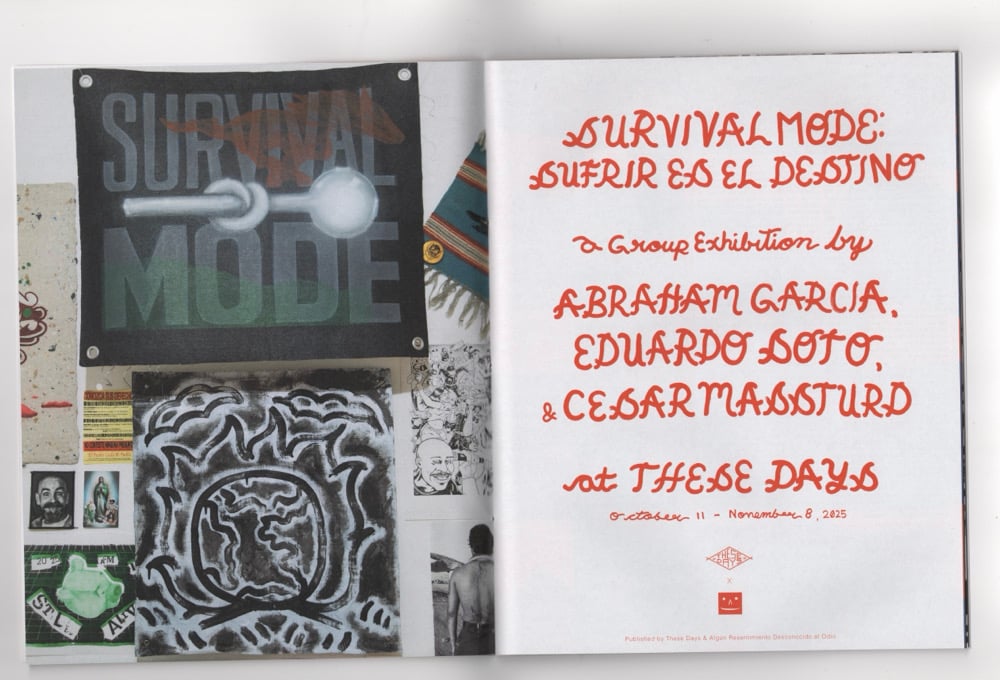 SURVIVAL
MODE
SURVIVAL MODE:
SUFRIR ES EL DESTINO
a Group Exhibition by
ABRAHAM GARCIA,
EDUARDO SOTO,
& CESAR MASSTURD
at THESE DAYS
October 11 - November 8, 2025
THESE
DAYS
X
Published by These Days & Algún Resentimiento Desconocido al Odio